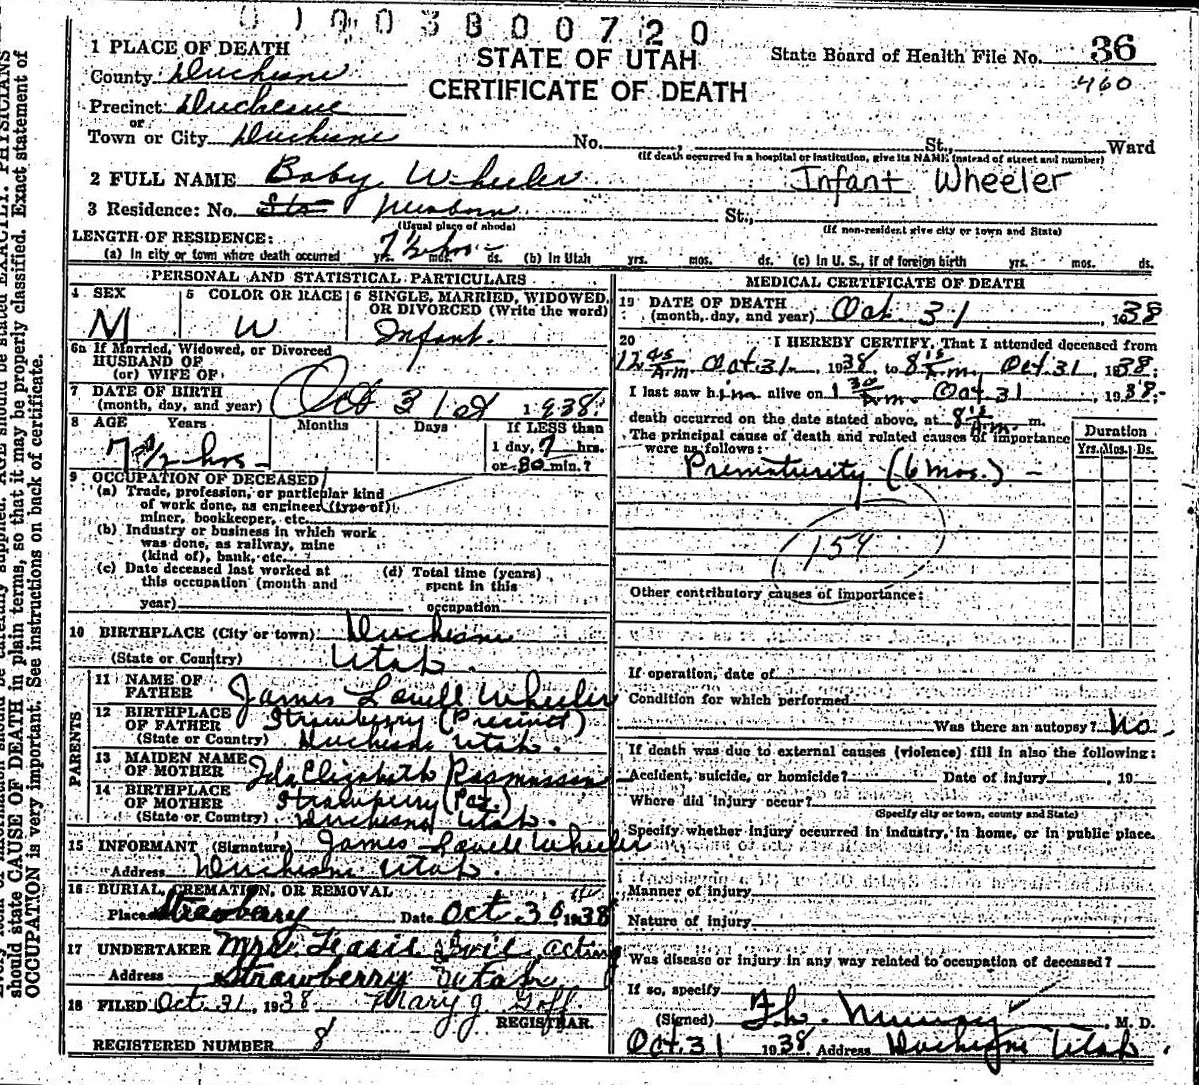 0 1 0 0 3 8 0 0 7 2 0
STATE OF UTAH
CERTIFICATE OF DEATH
State Board of Health File No. 36
460
1 PLACE OF DEATH
County Duchesne
Precinct Duchesne
or
Town or City Duchesne No. St., Ward
(If death occurred in a hospital or institution, give its NAME instead of street and number)
2 FULL NAME Baby Wheeler Infant Wheeler
3 Residence: No. Newborn St.,
(Usual place of abode) (If non-resident give city or town and State)
LENGTH OF RESIDENCE:
(a) In city or town where death occurred 7 1/2 hrs yrs. mos. ds. (b) In Utah yrs. mos. ds. (c) in U. S., if of foreign birth yrs. mos. ds.
PERSONAL AND STATISTICAL PARTICULARS
4 SEX
M
5 COLOR OR RACE
W
6 SINGLE, MARRIED, WIDOWED, OR DIVORCED (Write the word)
Infant
6a If Married, Widowed, or Divorced
HUSBAND OF
(or) WIFE OF
7 DATE OF BIRTH
(month, day, and year) Oct 31st 1938
8 AGE Years Months Days If LESS than
7 1/2 hrs 1 day, 7 hrs.
or 30 min.?
9 OCCUPATION OF DECEASED
(a) Trade, profession, or particular kind
of work done, as engineer (type of)
miner, bookkeeper, etc.
(b) Industry or business in which work
was done, as railway, mine
(kind of), bank, etc.
(c) Date deceased last worked at
this occupation (month and
year)
(d) Total time (years)
spent in this
occupation
10 BIRTHPLACE (City or town) Duchesne
(State or Country) Utah
PARENTS
11 NAME OF
FATHER James Lovell Wheeler
12 BIRTHPLACE
OF FATHER Strawberry (Precinct)
(State or Country) Duchesne Utah.
13 MAIDEN NAME
OF MOTHER Ida Elizabeth Rasmussen
14 BIRTHPLACE
OF MOTHER Strawberry
(State or Country) Duchesne Utah.
15 INFORMANT (Signature) James Lovell Wheeler
Address Duchesne Utah.
16 BURIAL, CREMATION, OR REMOVAL
Place Strawberry Date Oct. 1938
17 UNDERTAKER Mrs. acting
Address Strawberry Utah
18 FILED Oct. 31, 1938 Mary J. Goff
REGISTRAR.
REGISTERED NUMBER 8
MEDICAL CERTIFICATE OF DEATH
19 DATE OF DEATH
(month, day, and year) Oct. 31, 1938
20 I HEREBY CERTIFY, That I attended deceased from
12 45 A.M. Oct. 31, 1938 to 8 15 A.m. Oct. 31, 1938;
I last saw him alive on 1 30 A.m. Oct. 31, 1938;
death occurred on the date stated above, at 8 15 A.m. m.
The principal cause of death and related causes of importance
were as follows:
Duration
Yrs. Mos. Ds.
Prematurity (6 mos.) -
154
Other contributory causes of importance:
If operation, date of
Condition for which performed
Was there an autopsy? No
If death was due to external causes (violence) fill in also the following:
Accident, suicide, or homicide? Date of injury , 19
Where did injury occur?
(Specify city or town, county and State)
Specify whether injury occurred in industry, in home, or in public place.
Manner of injury
Nature of injury
Was disease or injury in any way related to occupation of deceased?
If so, specify
(Signed) Murray M. D.
Oct. 31 1938 Address Duchesne Utah
should state CAUSE OF DEATH in plain terms, so that it may be properly classified. Exact statement of
OCCUPATION is very important. See instructions on back of certificate.